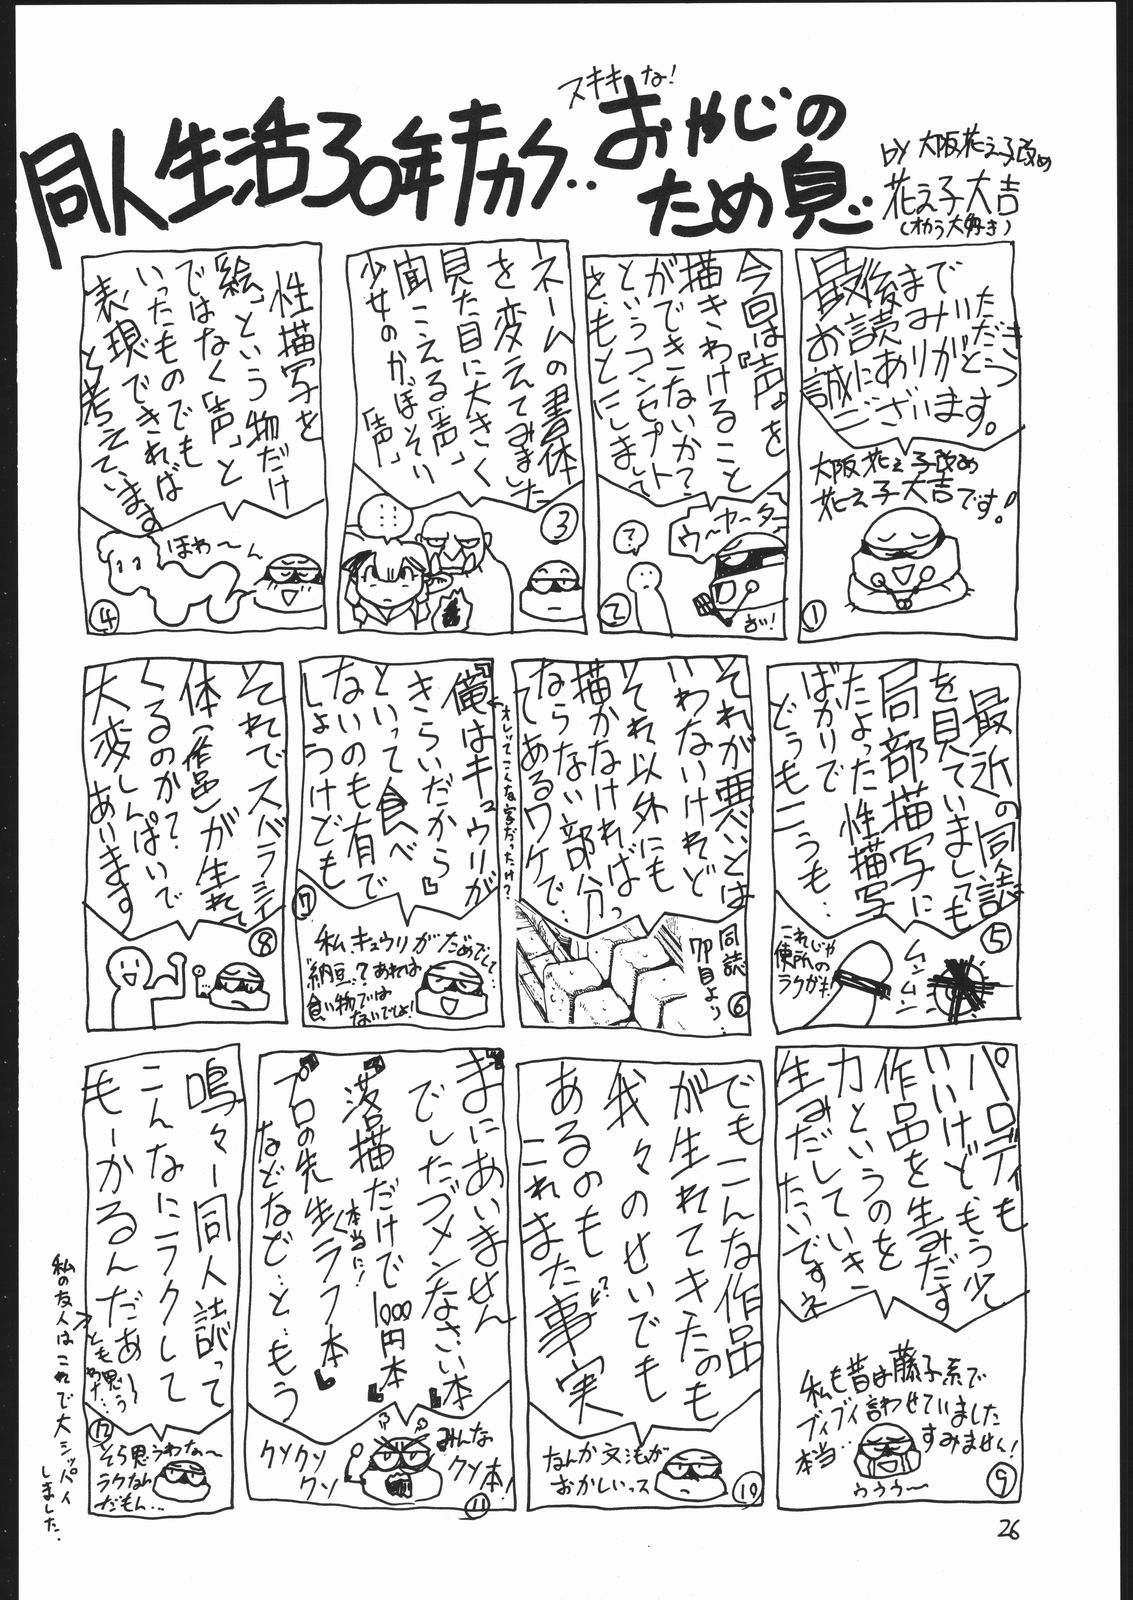 同人生活30年キカク‥
スキキな!
おやじの
ため息
BY 大阪花え子改め
花え子大吉
(オカラ大好き)
最後まで
お読みいただき
誠にありがとう
ございます。
大阪花え子改め
花え子大吉です!
①
今回は『声』を
描きわけること
ができないか?
というコンセプト
をもとにしまして
ウ〜ヤ〜タ〜
?
おい!
②
ネームの書体
を変えてみました
見た目に大きく
聞こえる「声」
少女のかぼそい
「声」
③
性描写を
「絵」という物だけ
ではなく「声」と
いったものでも
表現できれば
と考えています
ほわ〜ん
④
最近の同誌
を見ていましても
局部描写に
たよった性描写
ばかりで
どうもこうも‥
これじゃ
便所の
ラクガキ
ムンムン
⑤
それが悪いとは
いわないけれど
それ以外にも
描かなければ
ならない部分っ
てあるワケで‥
同誌
7P目より
⑥
『俺はキュウリが
きらいだから』
といって食べ
ないのも有で
しょうけども
オレってこんな字だったけ?
私、キュウリがだめでして
"納豆"?あれは
食い物では
ないでしょ!
⑦
それでスバラシイ
体(作品)が生れて
くるのかて?
大変しんぱいで
あります
⑧
パロディも
いいけどもう少し
作品を生みだす
力というのを
生みだしていき
たいですネ
私も昔は藤子系で
ブイブイ言わせていました
本当‥すみません!
ううう〜
⑨
でもこんな作品
が生れてきたのも
我々のせいでも
あるのも
これまた事実
なんか文法が
おかしいっス
⑩
『まにあいません
でしたゴメンなさい本』
『落描だけで1000円本』
『プロの先生ラフ本』
本当に!
などなど‥と‥もう
みんな
クソ本!
クソクソ
クソ
⑪
嗚々ー同人誌って
こんなにラクして
もーかるんだぁ〜
とも思う
わナ‥
そら思うわな〜
ラクなん
だもん‥
⑫
私の友人はこれで大シッパイ
しました.
26